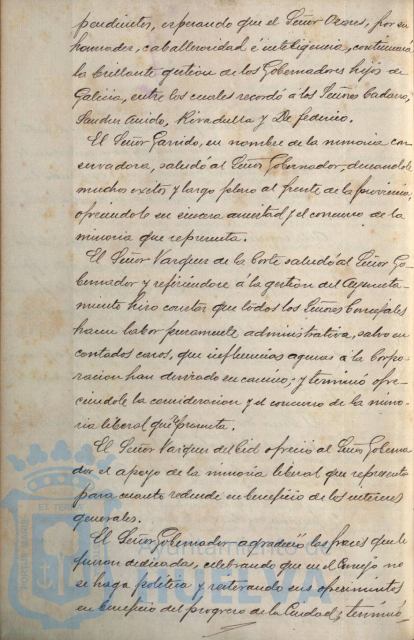 pendientes, esperando que el Señor Osores, por su
honradez, caballerosidad é inteligencia, continuará
la brillante gestion de los Gobernadores hijos de
Galicia, entre los cuales recordó á los Señores Cadarso,
Sanchez Anido, Rivadulla y De Federico.
El Señor Garrido, en nombre de la minoria con
servadora, saludó al Señor Gobernador, deseandole
muchos exitos y largo plazo al frente de la provincia,
ofreciendole su sincera amistad y el concurso de la
minoria que representa.
El Señor Vazquez de la Corte saludó al Señor Go-
bernador y refiriendose á la gestion del Ayunta-
miento hizo constar que todos los Señores Concejales
hacen labor puramente administrativa, salvo en
contados casos, que influencias agenas á la Corpo-
racion han desviado su camino; y terminó ofre-
ciendole la consideracion y el concurso de la mino-
ria liberal que
El Señor Vazquez del Cid ofreció al Señor Goberna-
dor el apoyo de la minoria liberal que representa
para cuanto redunde en beneficio de los intereses
generales.
El Señor Gobernador agradeció las frases que le
fueron dedicadas, celebrando que en el Concejo no
se haga politica y reiterando sus ofrecimientos
en beneficio del progreso de la Ciudad; y terminó
Ayuntamiento de
HUELVA